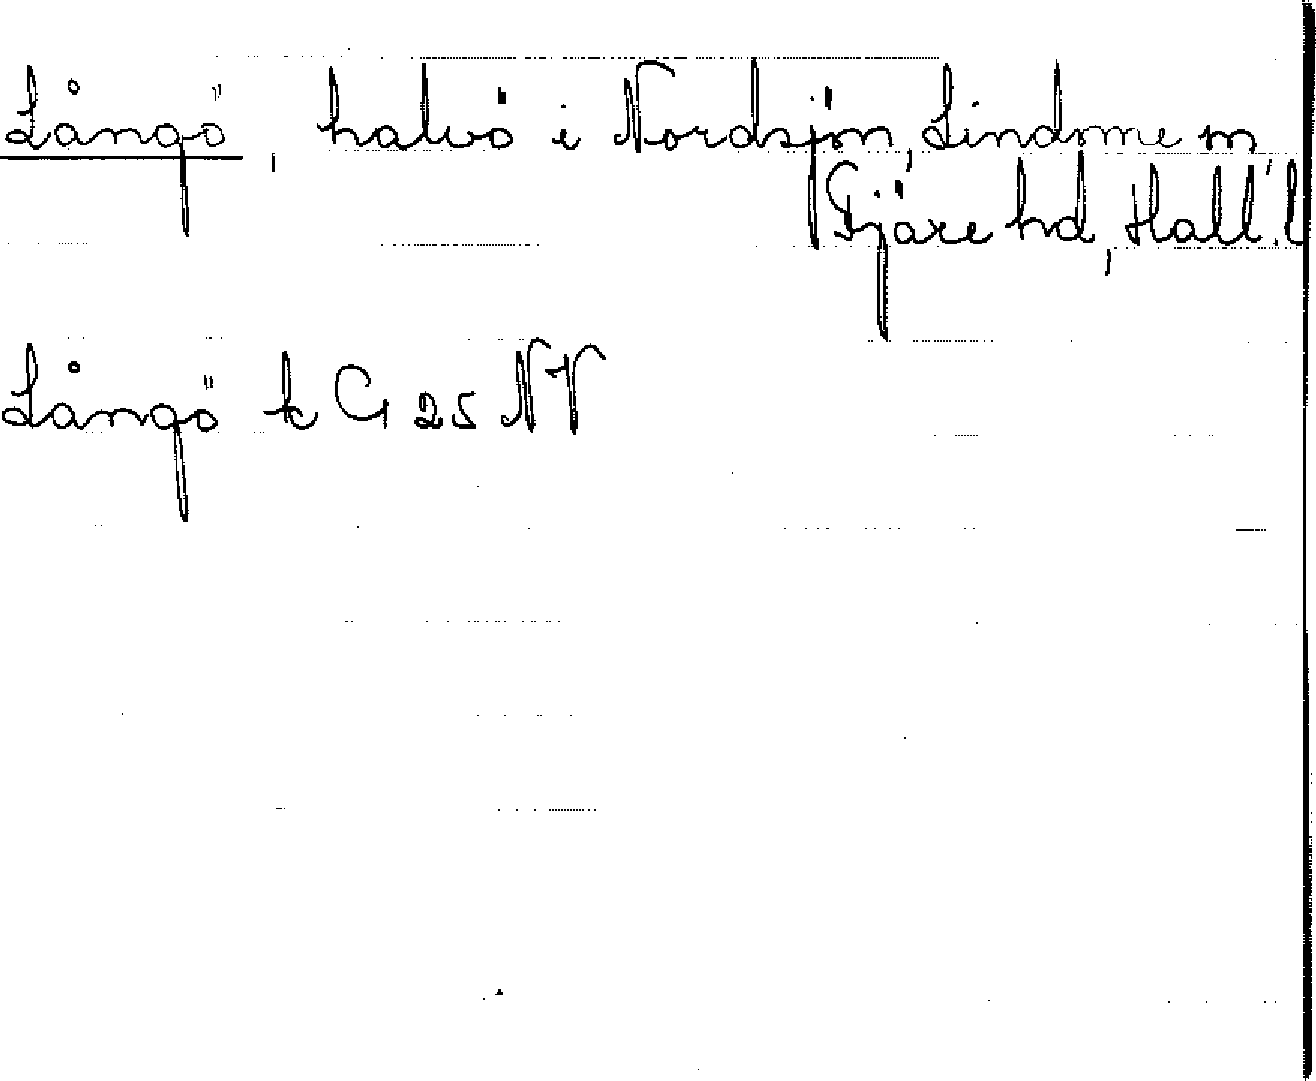 Långö, halvö i Nordsjön, Lindome sn,
Fjäre hd, Hall. l
Långö k G 25 NV